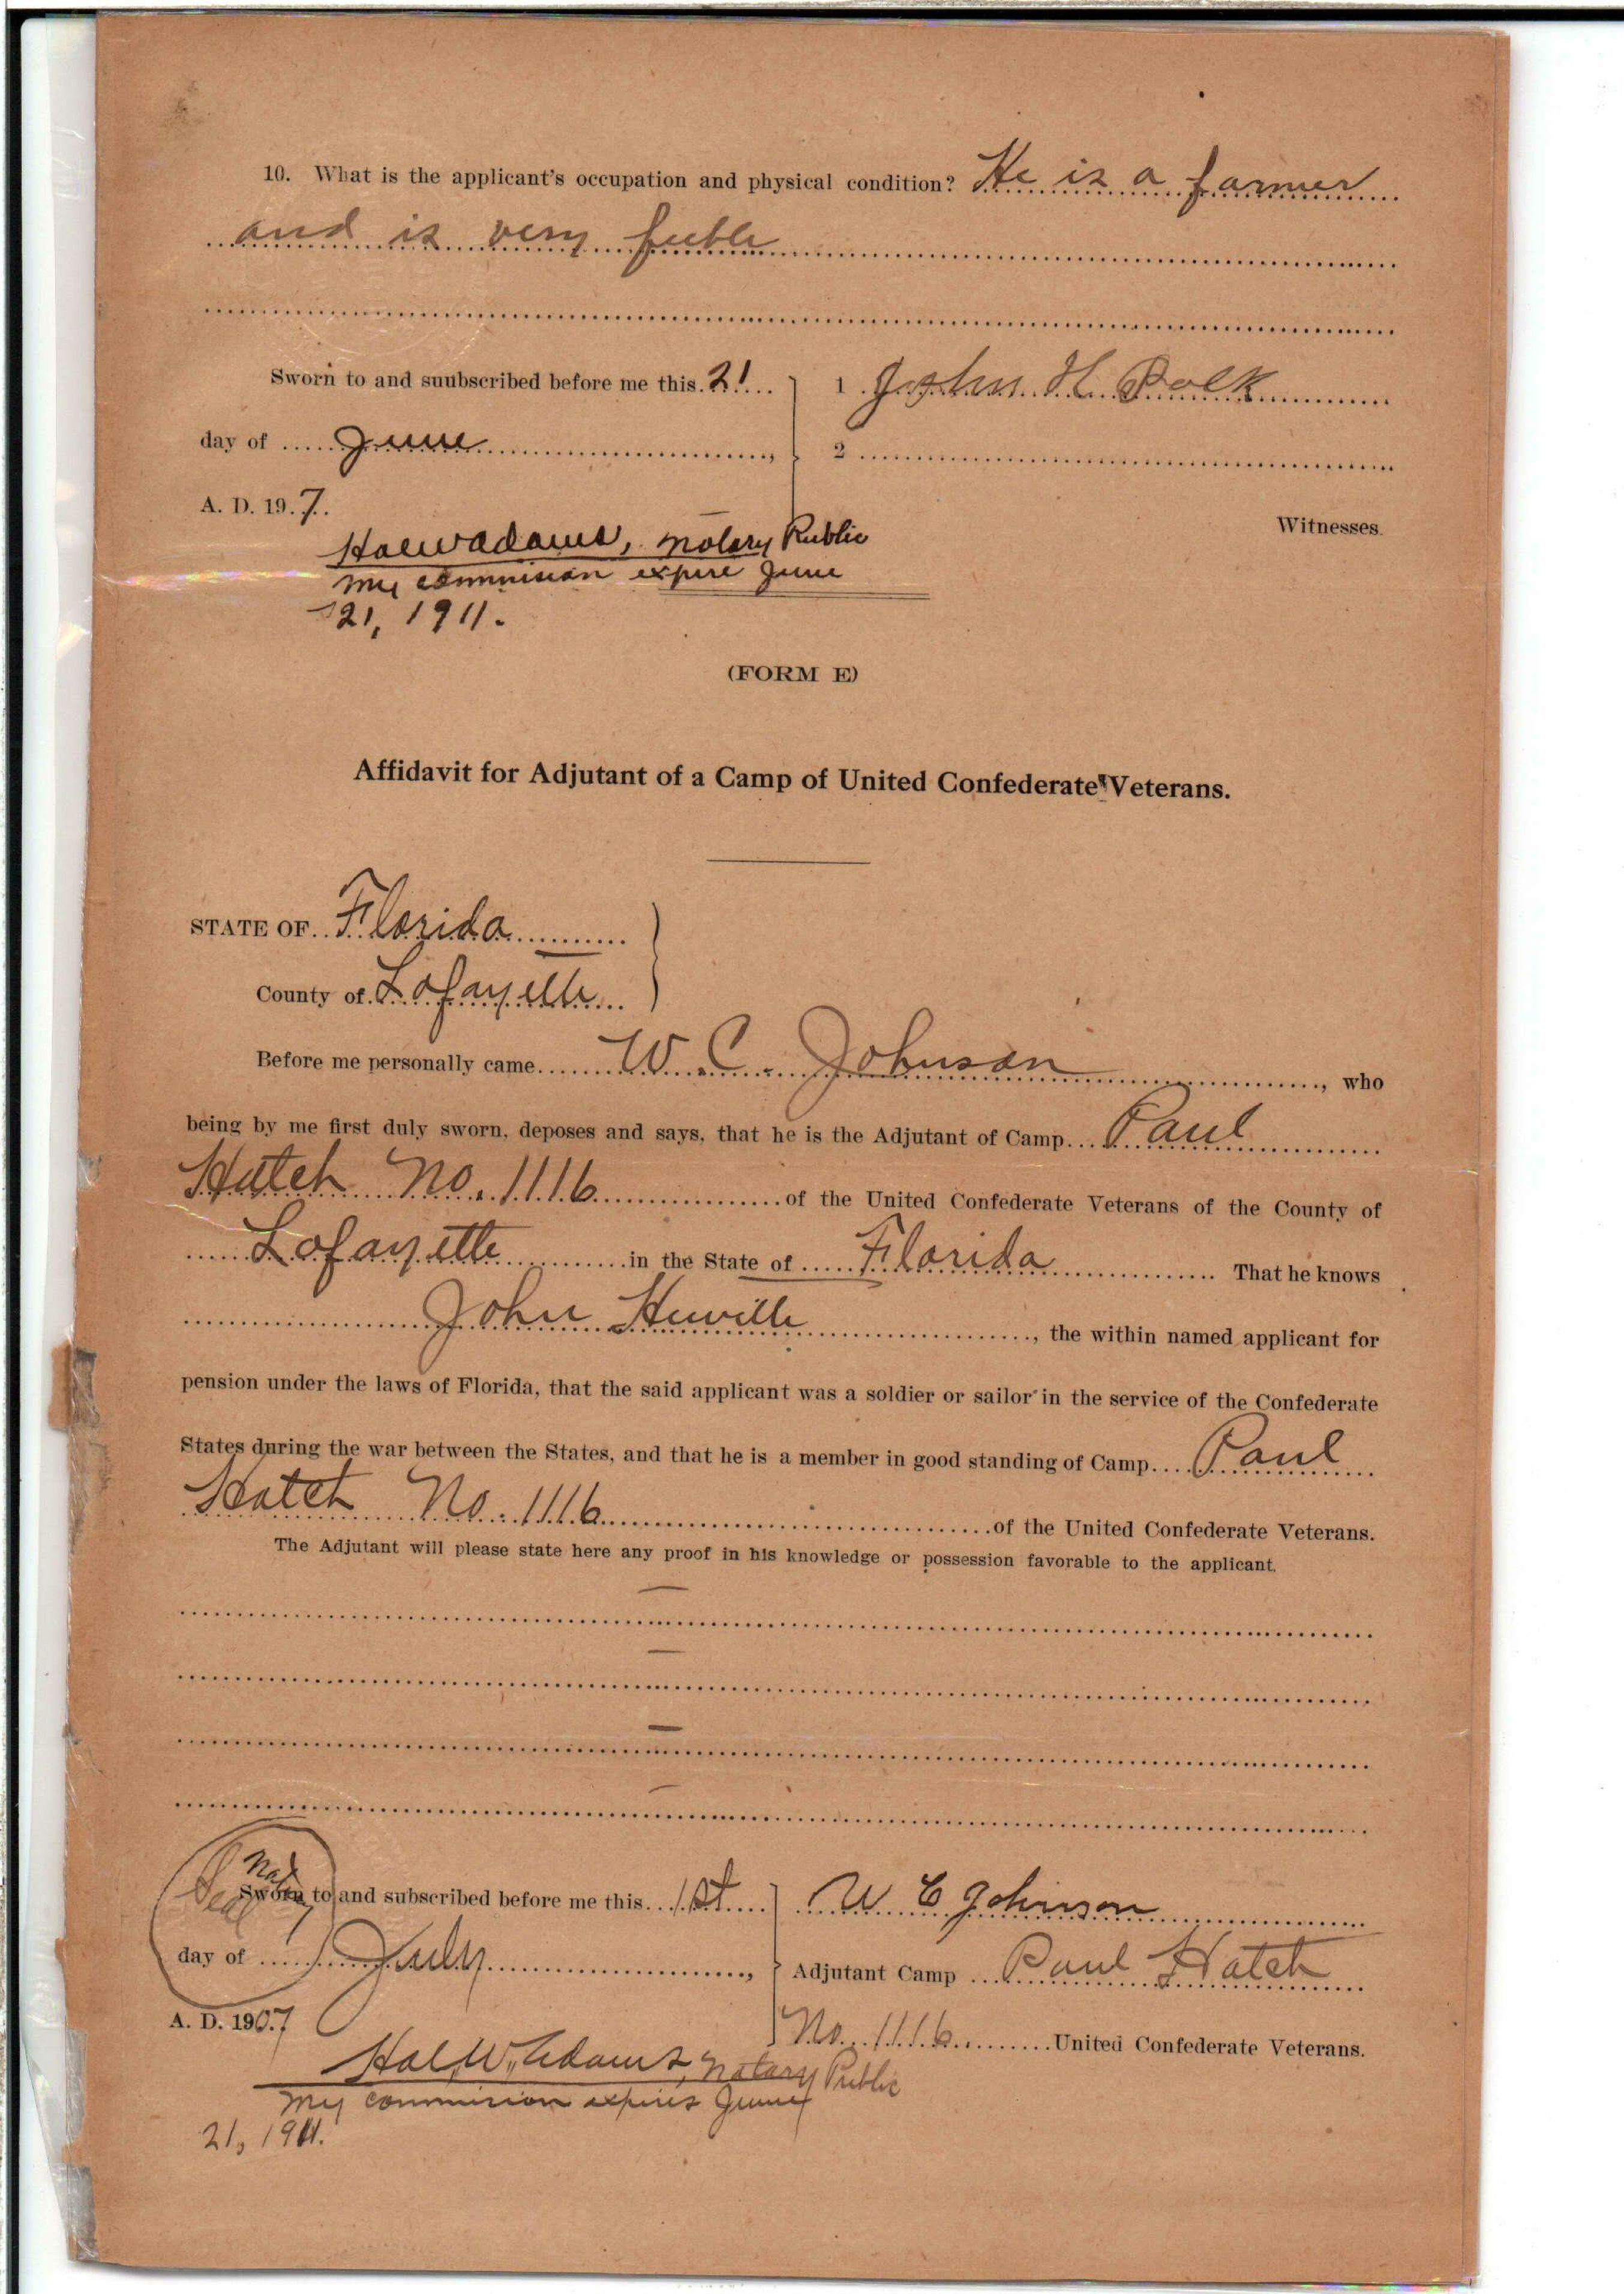 10. What is the applicant's occupation and physical condition? He is a farmer
and is very feeble
Sworn to and suubscribed before me this 21
1 John H Polk
day of June
2
A. D. 19 7.
Witnesses.
Hal W Adams, Notary Public
My commision expire June
21, 1911.
(FORM E)
Affidavit for Adjutant of a Camp of United Confederate Veterans.
STATE OF Florida
County of Lafayette
Before me personally came W. C. Johnson, who
being by me first duly sworn, deposes and says, that he is the Adjutant of Camp Paul
Hatch No. 1116 of the United Confederate Veterans of the County of
Lafayette in the State of Florida That he knows
John, the within named applicant for
pension under the laws of Florida, that the said applicant was a soldier or sailor in the service of the Confederate
States during the war between the States, and that he is a member in good standing of Camp Paul
Hatch No. 1116 of the United Confederate Veterans.
The Adjutant will please state here any proof in his knowledge or possession favorable to the applicant.
Seal
Sworn to and subscribed before me this 1st
W C Johnson
day of July,
Adjutant Camp Paul Hatch
A. D. 1907
No. 1116 United Confederate Veterans.
Hal W. Adams, Notary Public
My commision expires June
21, 1911.